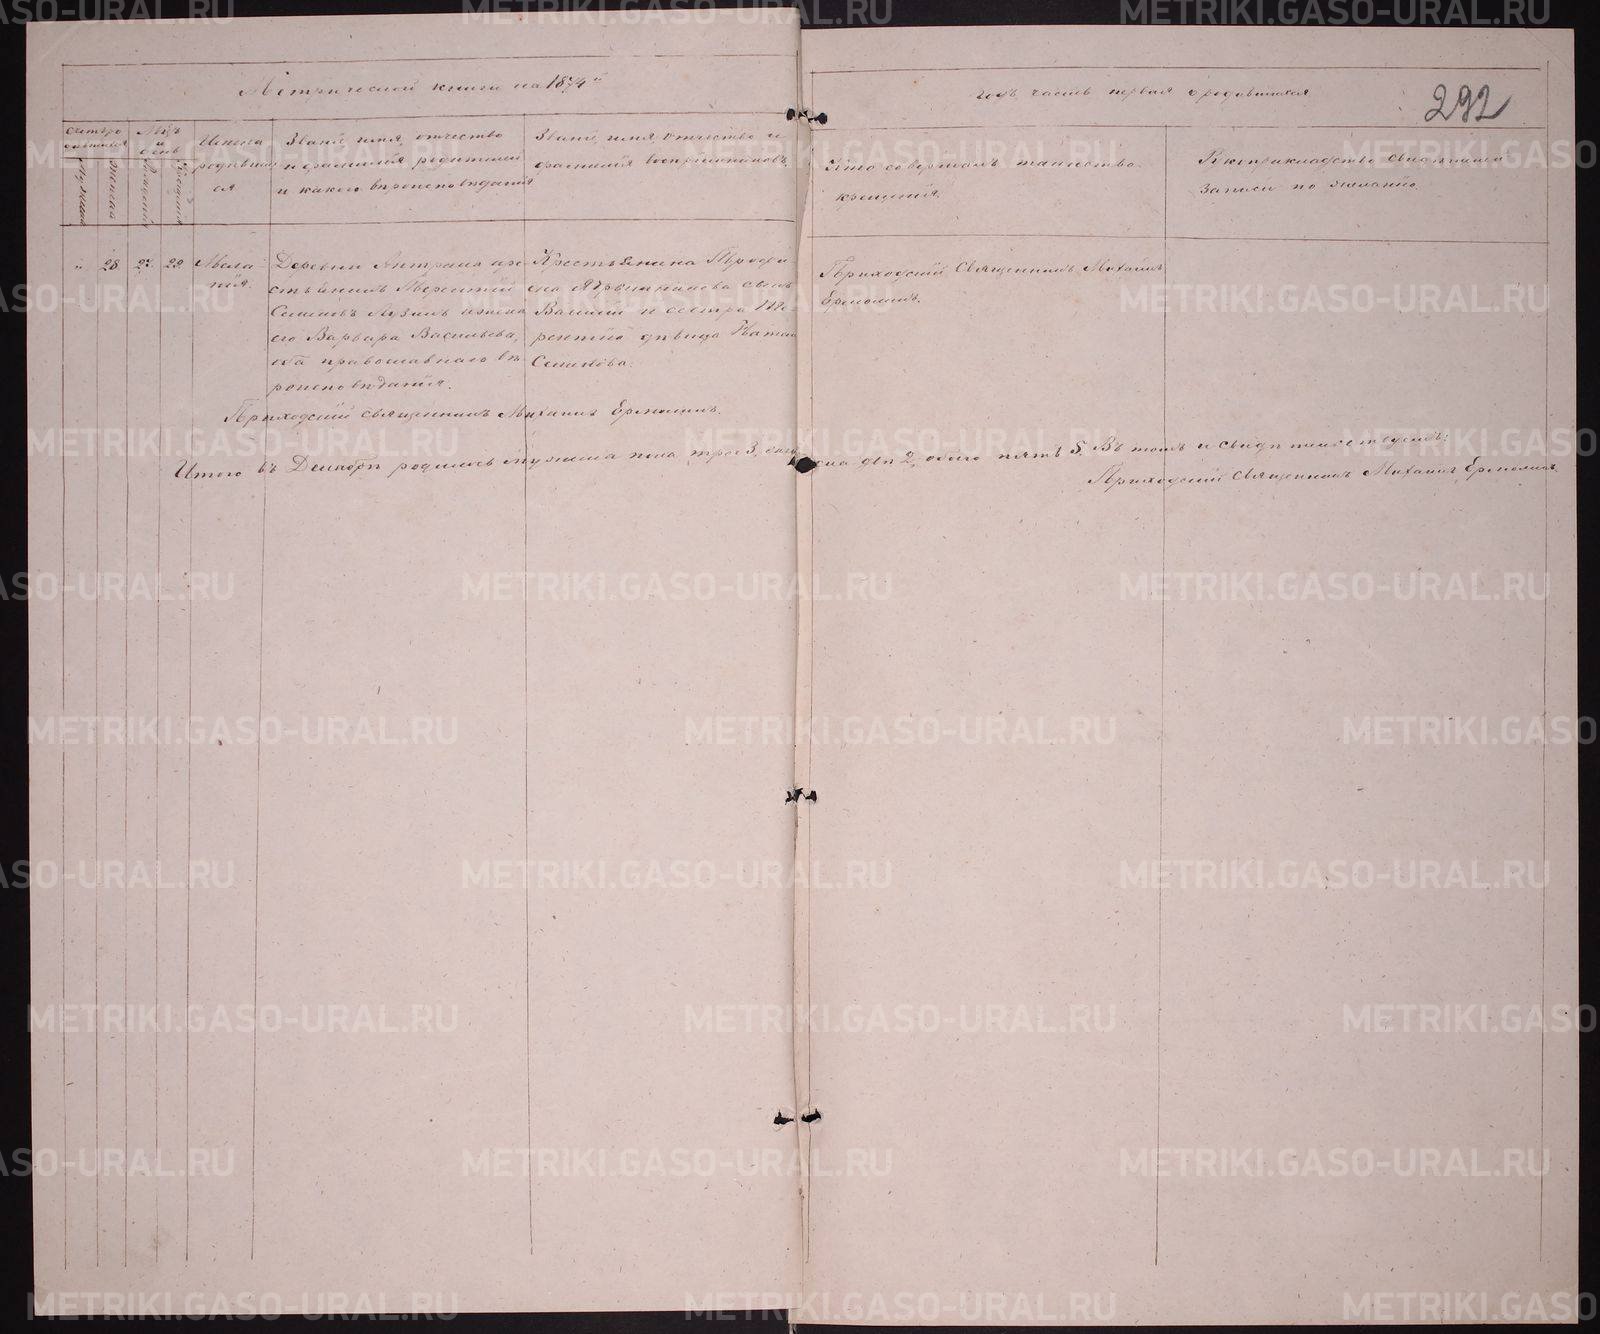 Метрической книги на 1874й
годъ, часть первая о родившихся
292
Счетъ ро
дившихся
Мѣс.
и
день
Имена
родивши
ся
Званіе, имя, отчество
и фамилія родителей
и какого вѣроисповѣданія
Званіе, имя, отчество и
фамилія воспріемниковъ
Кто совершалъ таинство
крещенія.
Рукоприкладство свидѣтелей
записи по желанію.
28 27 29 Мела
нія
Деревни кре
стьянинъ
Семеновъ и жена
его Варвара Васильева,
оба православнаго вѣ
роисповѣданія.
Крестьянина
сынъ
Василій и сестра
дѣвица
Семенова.
Приходскій Священникъ Михаилъ
Ермолинъ.
Приходскій священникъ Михаилъ Ермолинъ.
Итого въ Декабрѣ родилось мужеска пола трое 3, женска двѣ 2, обоего пять 5. Въ томъ и свидѣтельствуемъ:
Приходскій священникъ Михаилъ Ермолинъ.
METRIKI.GASO-URAL.RU